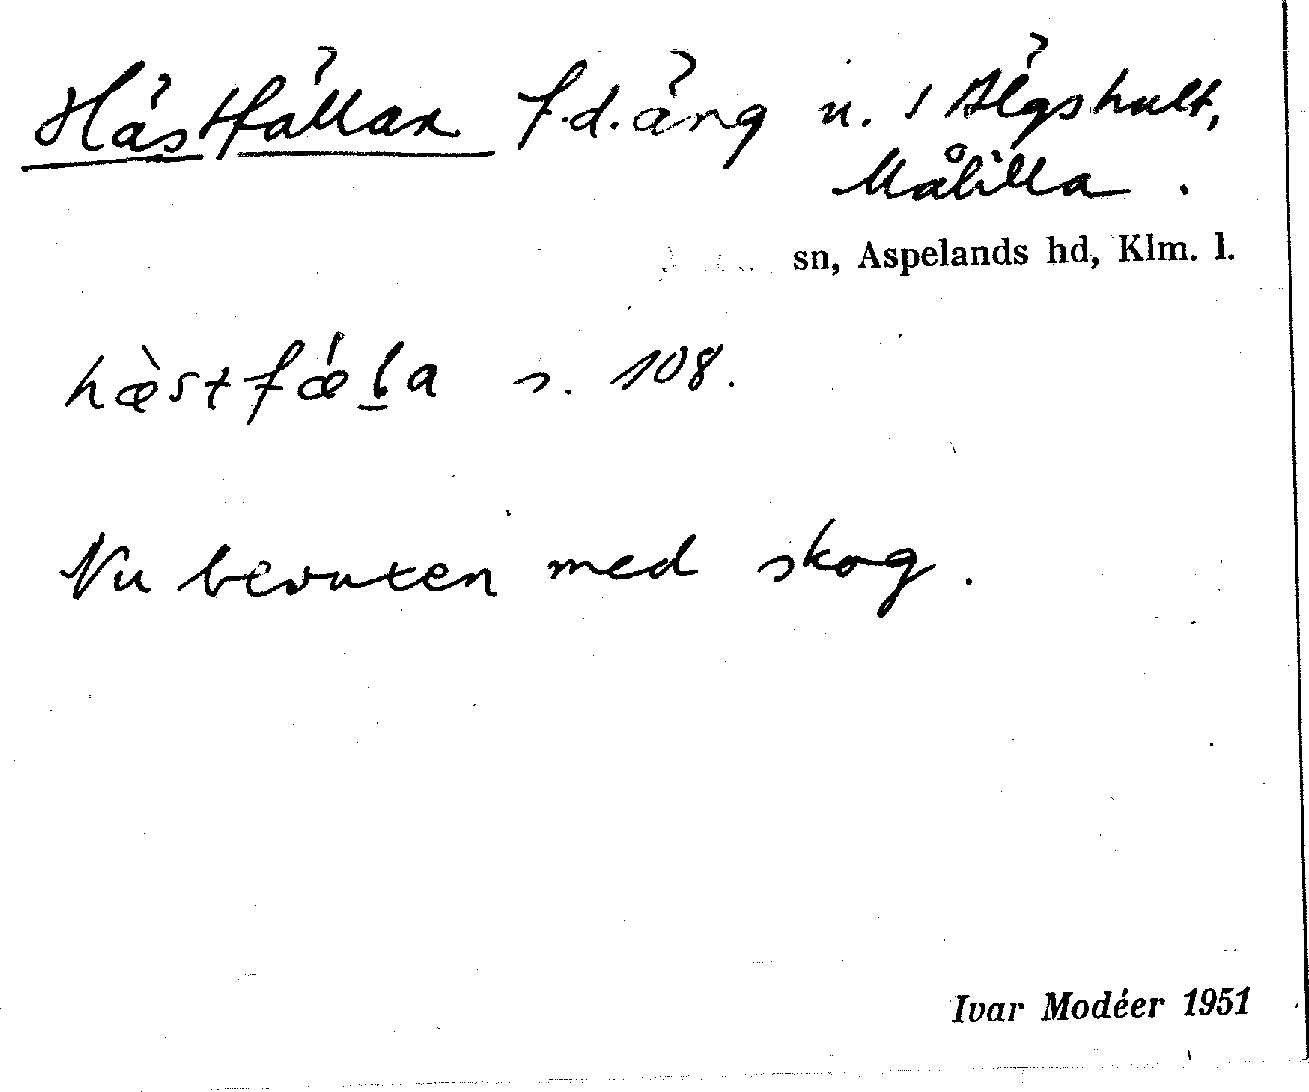 Hästfällan f.d. äng u. 1 Älgshult,
Målilla.
sn, Aspelands hd, Klm. l.
hæ̀stfǽḻa s. 108.
Nu bevuxen med skog.
Ivar Modéer 1951